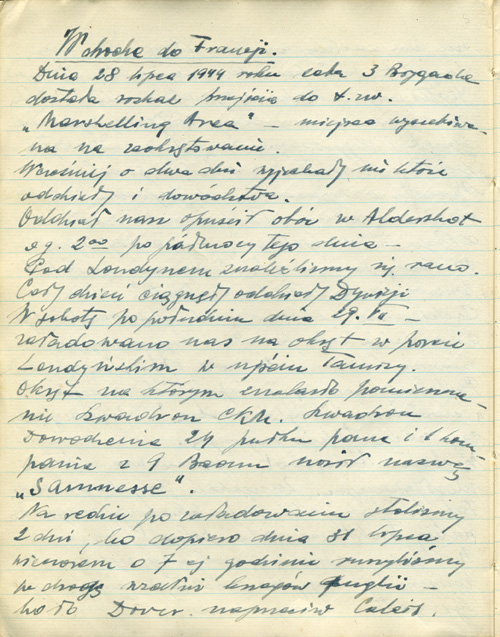 W drodze do Francji.
Dnia 28 lipca 1944 roku cała 3 Brygada
dostała rozkaz przejścia do t.zw.
„Marshelling Area" – miejsca wyczekiwa-
nia na zaokrętowanie.
Wcześniej o dwa dni wyjechały niektóre
oddziały i dowództwa.
Oddział nasz opuścił obóz w Aldershot
o g. 2⁰⁰ po północy tego dnia –
Pod Londynem znaleźliśmy się rano.
Cały dzień ciągnęły oddziały Dywizji
W sobotę po południu dnia 29.VII –
załadowano nas na okręt w porcie
Londyńskim w ujściu Tamizy.
Okręt na którym znalazło pomieszcze-
nie szwadron CKM. szwadron
Dowodzenia 24 pułku panc i 1 kom-
pania z 9 Baonu nosił nazwę
„Samnesse".
Na redzie po załadowaniu staliśmy
2 dni, bo dopiero dnia 31 lipca
wieczorem o 7 ej godzinie ruszyliśmy
w drogę wzdłuż brzegów Anglii –
koło Dover. naprzeciw Calais.